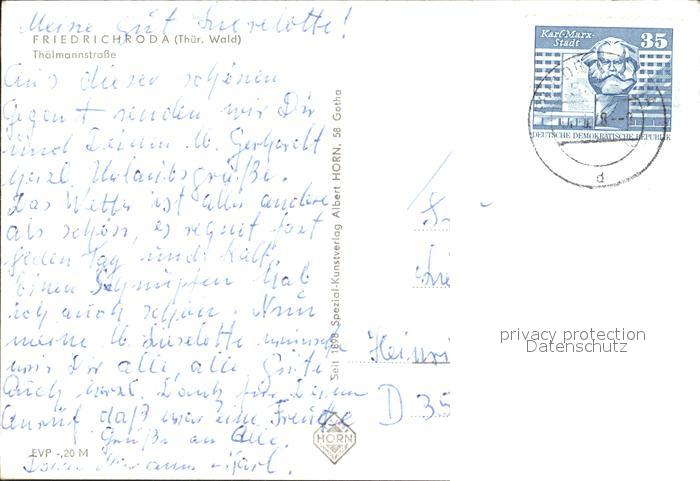 Meine gut Lieselotte!
FRIEDRICHRODA (Thür. Wald)
Thälmannstraße
Aus dieser schönen
Gegend senden wir Dir
und Deinem lb. Gerhardt
herzl. Urlaubsgrüße.
Das Wetter ist alles andere
als schön, es regnet fast
jeden Tag und kalt,
einen Schnupfen hab
ich auch schon. Nun
meine lb. Lieselotte wünschen
wir Dir alles, alles Gute
Auch herzl. Dank für Deinen
Anruf daß war eine Freude
Grüße an Alle.
Karl.
EVP -,20 M
Seit 1898 Spezial-Kunstverlag Albert HORN, 58 Gotha
HORN
Karl-Marx-
Stadt
35
DEUTSCHE DEMOKRATISCHE REPUBLIK
d
Heinri
D 35
privacy protection
Datenschutz